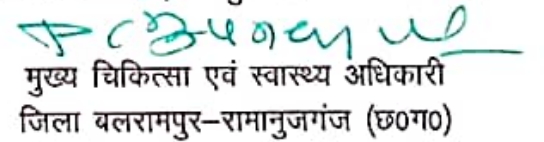 मुख्य चिकित्सा एवं स्वास्थ्य अधिकारी
जिला बलरामपुर–रामानुजगंज (छ0ग0)